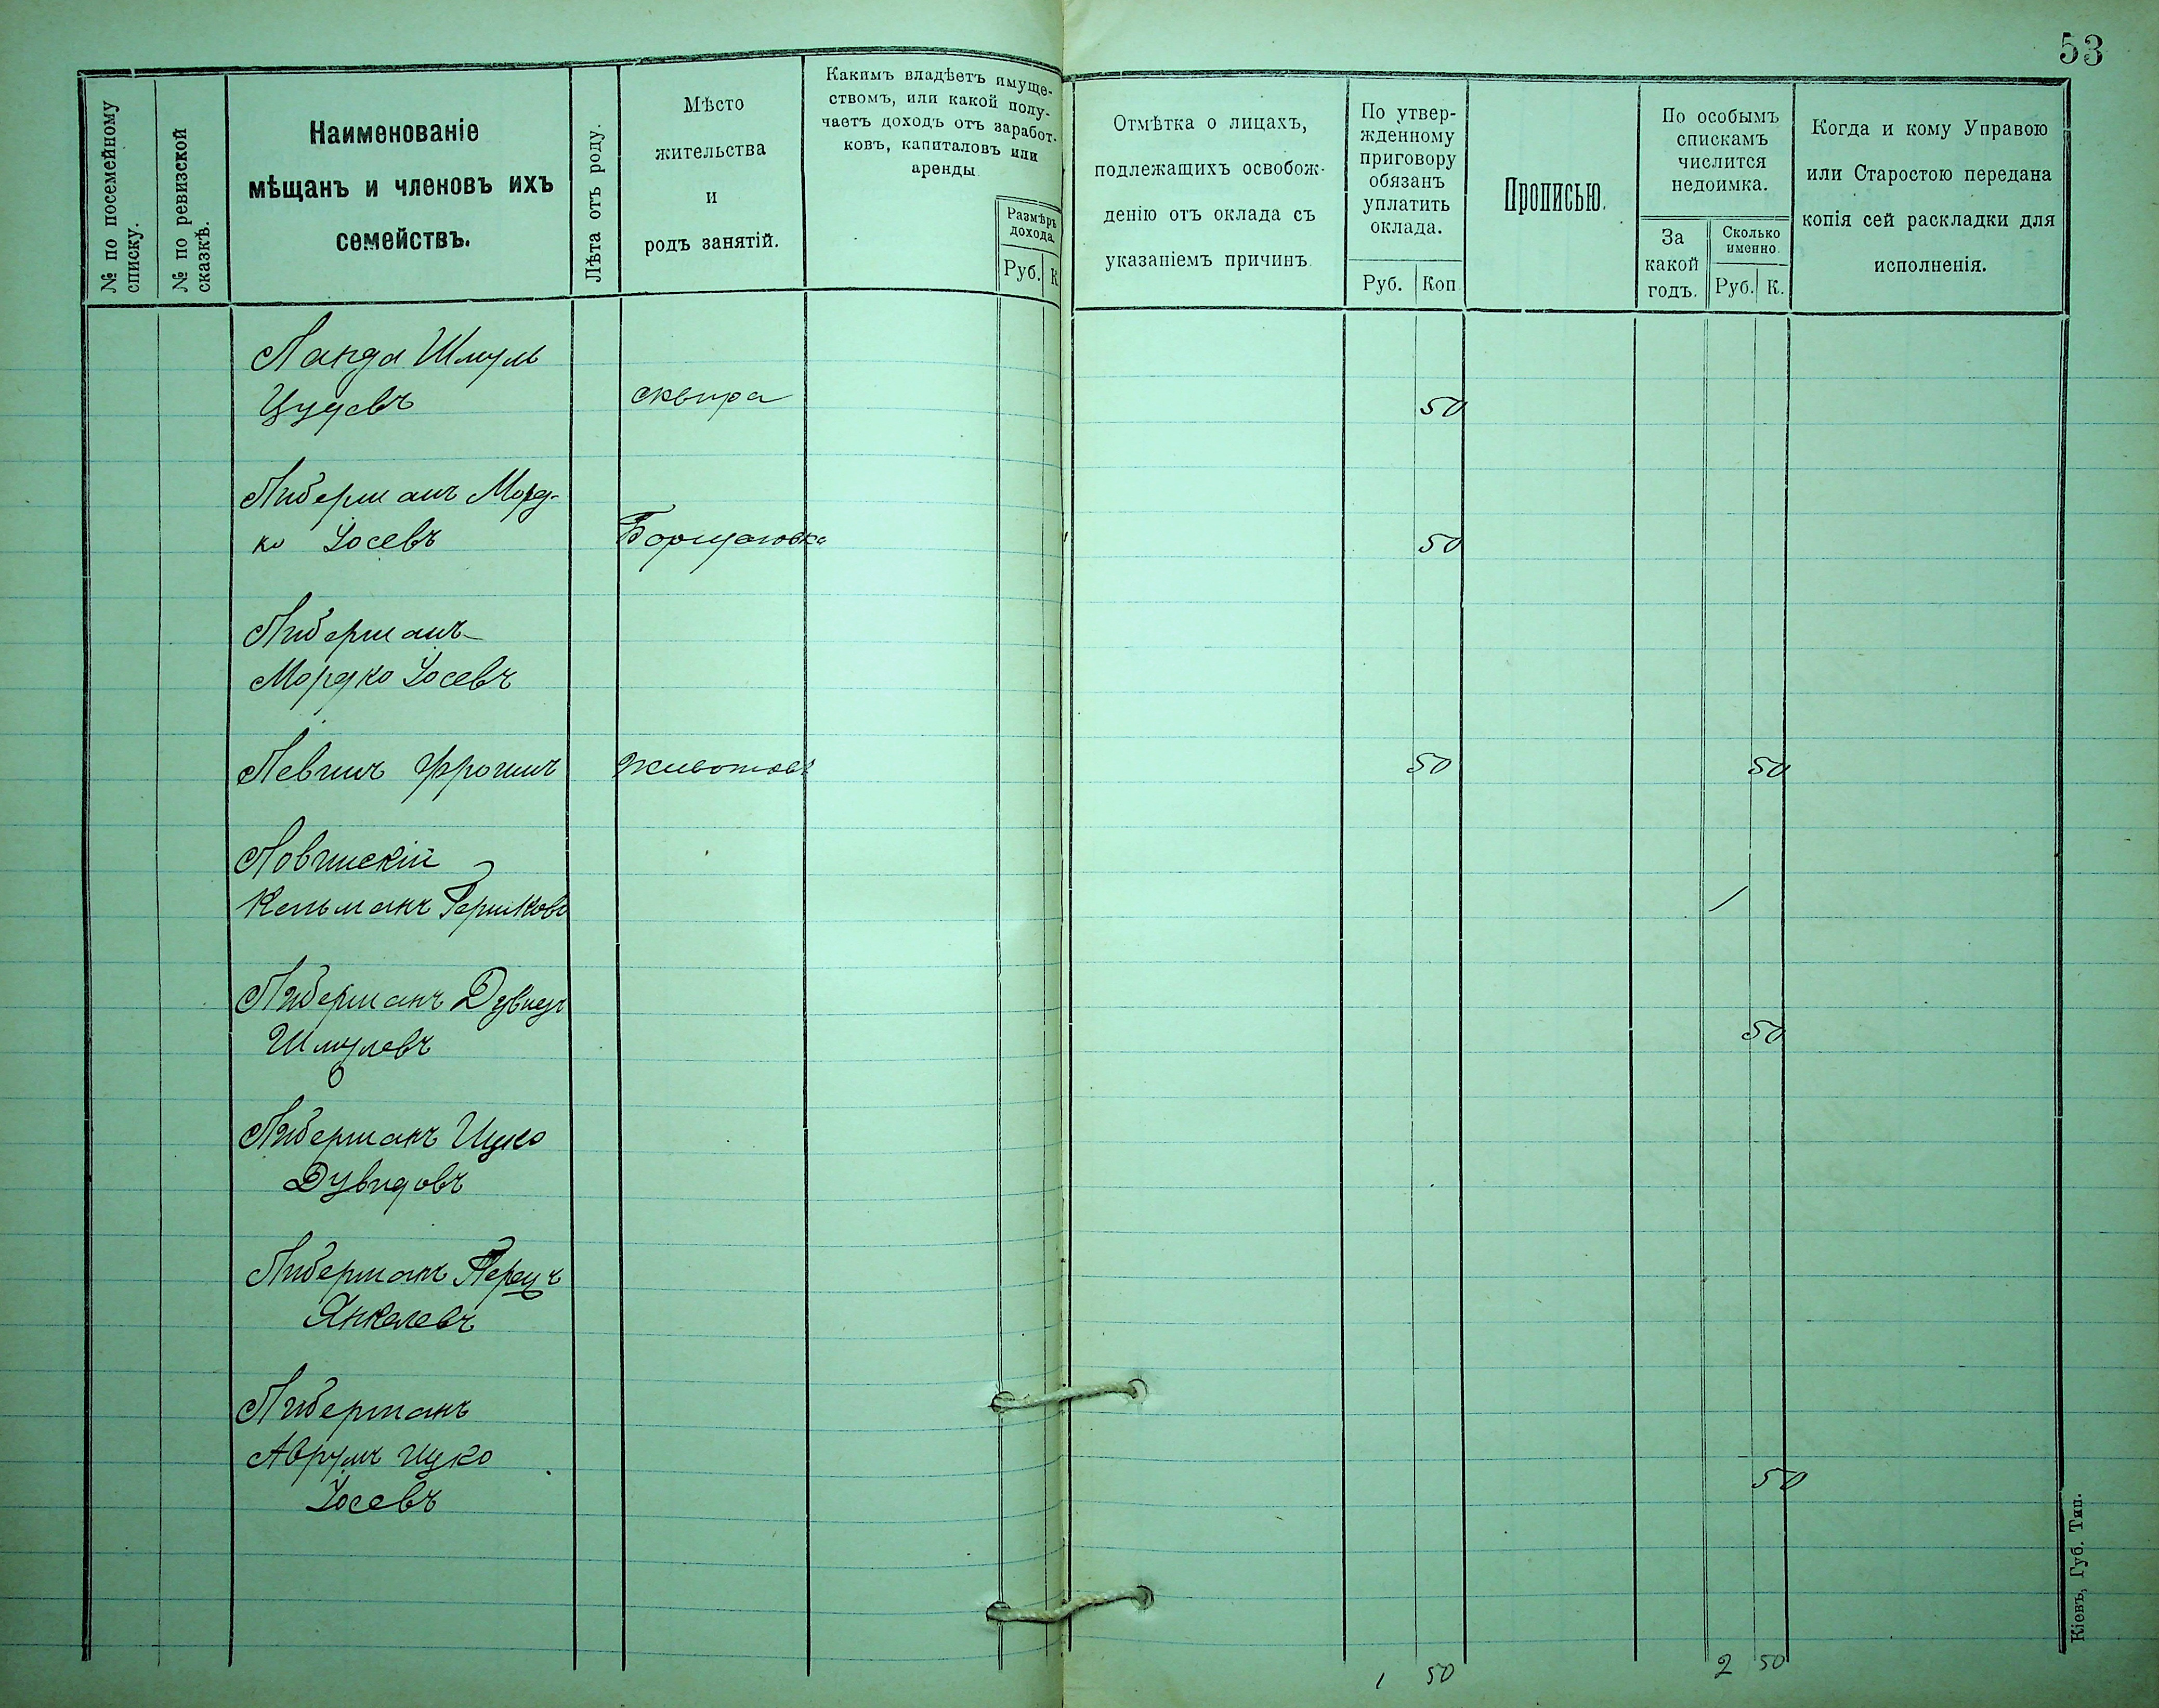 53
№ по посемейному
списку.
№ по ревизской
сказкѣ.
Наименованіе
мѣщанъ и членовъ ихъ
семействъ.
Лѣта отъ роду.
Мѣсто
жительства
и
родъ занятій.
Какимъ владѣетъ имуще-
ствомъ, или какой полу-
чаетъ доходъ отъ заработ-
ковъ, капиталовъ или
аренды
Размѣръ
дохода.
Руб. К
Отмѣтка о лицахъ,
подлежащихъ освобож-
денію отъ оклада съ
указаніемъ причинъ
По утвер-
жденному
приговору
обязанъ
уплатить
оклада.
Руб. Коп
Прописью.
По особымъ
спискамъ
числится
недоимка.
За
какой
годъ.
Сколько
именно.
Руб. К.
Когда и кому Управою
или Старостою передана
копія сей раскладки для
исполненія.
Ланда Шмуль
сквира 50
Либерманъ Морд-
ко Іосевъ Борщаговка 50
Либерманъ
Мордко Іосевъ
Левинъ Фроимъ Животовъ 50 50
Ловинскій
Кельманъ Гершковъ 1
Либерманъ Дувидъ
Шмулевъ 50
Либерманъ Ицко
Дувидовъ
Либерманъ Перецъ
Янкелевъ
Либерманъ
Аврумъ Ицко
Іосевъ 50
1 50 2 50
Кіевъ, Губ. Тип.